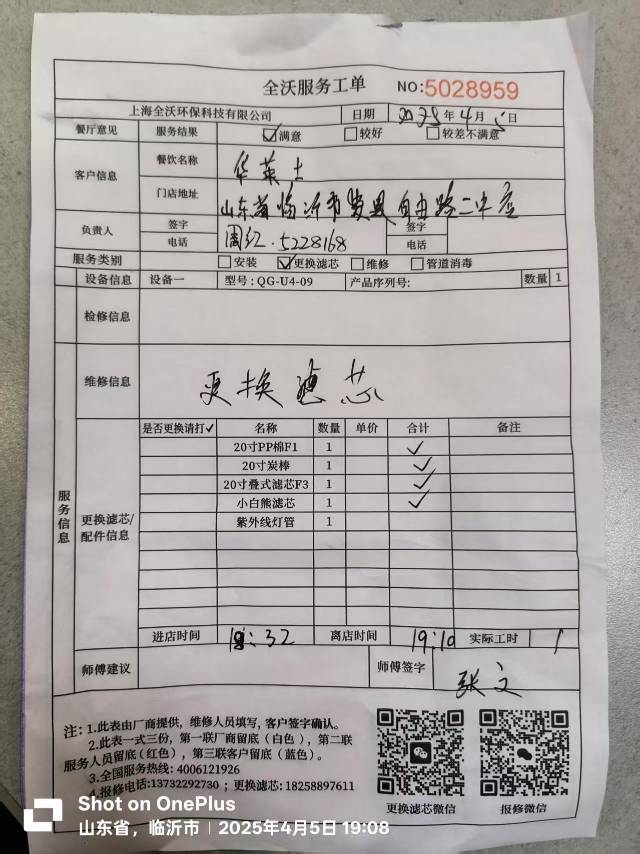 全沃服务工单 NO:5028959
上海全沃环保科技有限公司 日期 2025年4月5日
餐厅意见 服务结果 ☑满意 ☐较好 ☐较差不满意
客户信息 餐饮名称 华莱士
门店地址 山东省临沂市费县自由路二中店
负责人 签字 周红 签字
电话 5228168 电话
服务类别 ☐安装 ☑更换滤芯 ☐维修 ☐管道消毒
设备信息 设备一 型号: QG-U4-09 产品序列号: 数量 1
检修信息
维修信息 更换滤芯
服务信息
更换滤芯/配件信息
是否更换请打✓ 名称 数量 单价 合计 备注
20寸PP棉F1 1 ✓
20寸炭棒 1 ✓
20寸叠式滤芯F3 1 ✓
小白熊滤芯 1 ✓
紫外线灯管 1
进店时间 18:32 离店时间 19:10 实际工时 1
师傅建议 师傅签字 张文
注: 1.此表由厂商提供，维修人员填写，客户签字确认。
2.此表一式三份，第一联厂商留底（白色），第二联
服务人员留底(红色)，第三联客户留底（蓝色）。
3.全国服务热线: 4006121926
4.报修电话:13732292730；更换滤芯: 18258897611
更换滤芯微信 报修微信
Shot on OnePlus
山东省，临沂市 | 2025年4月5日 19:08